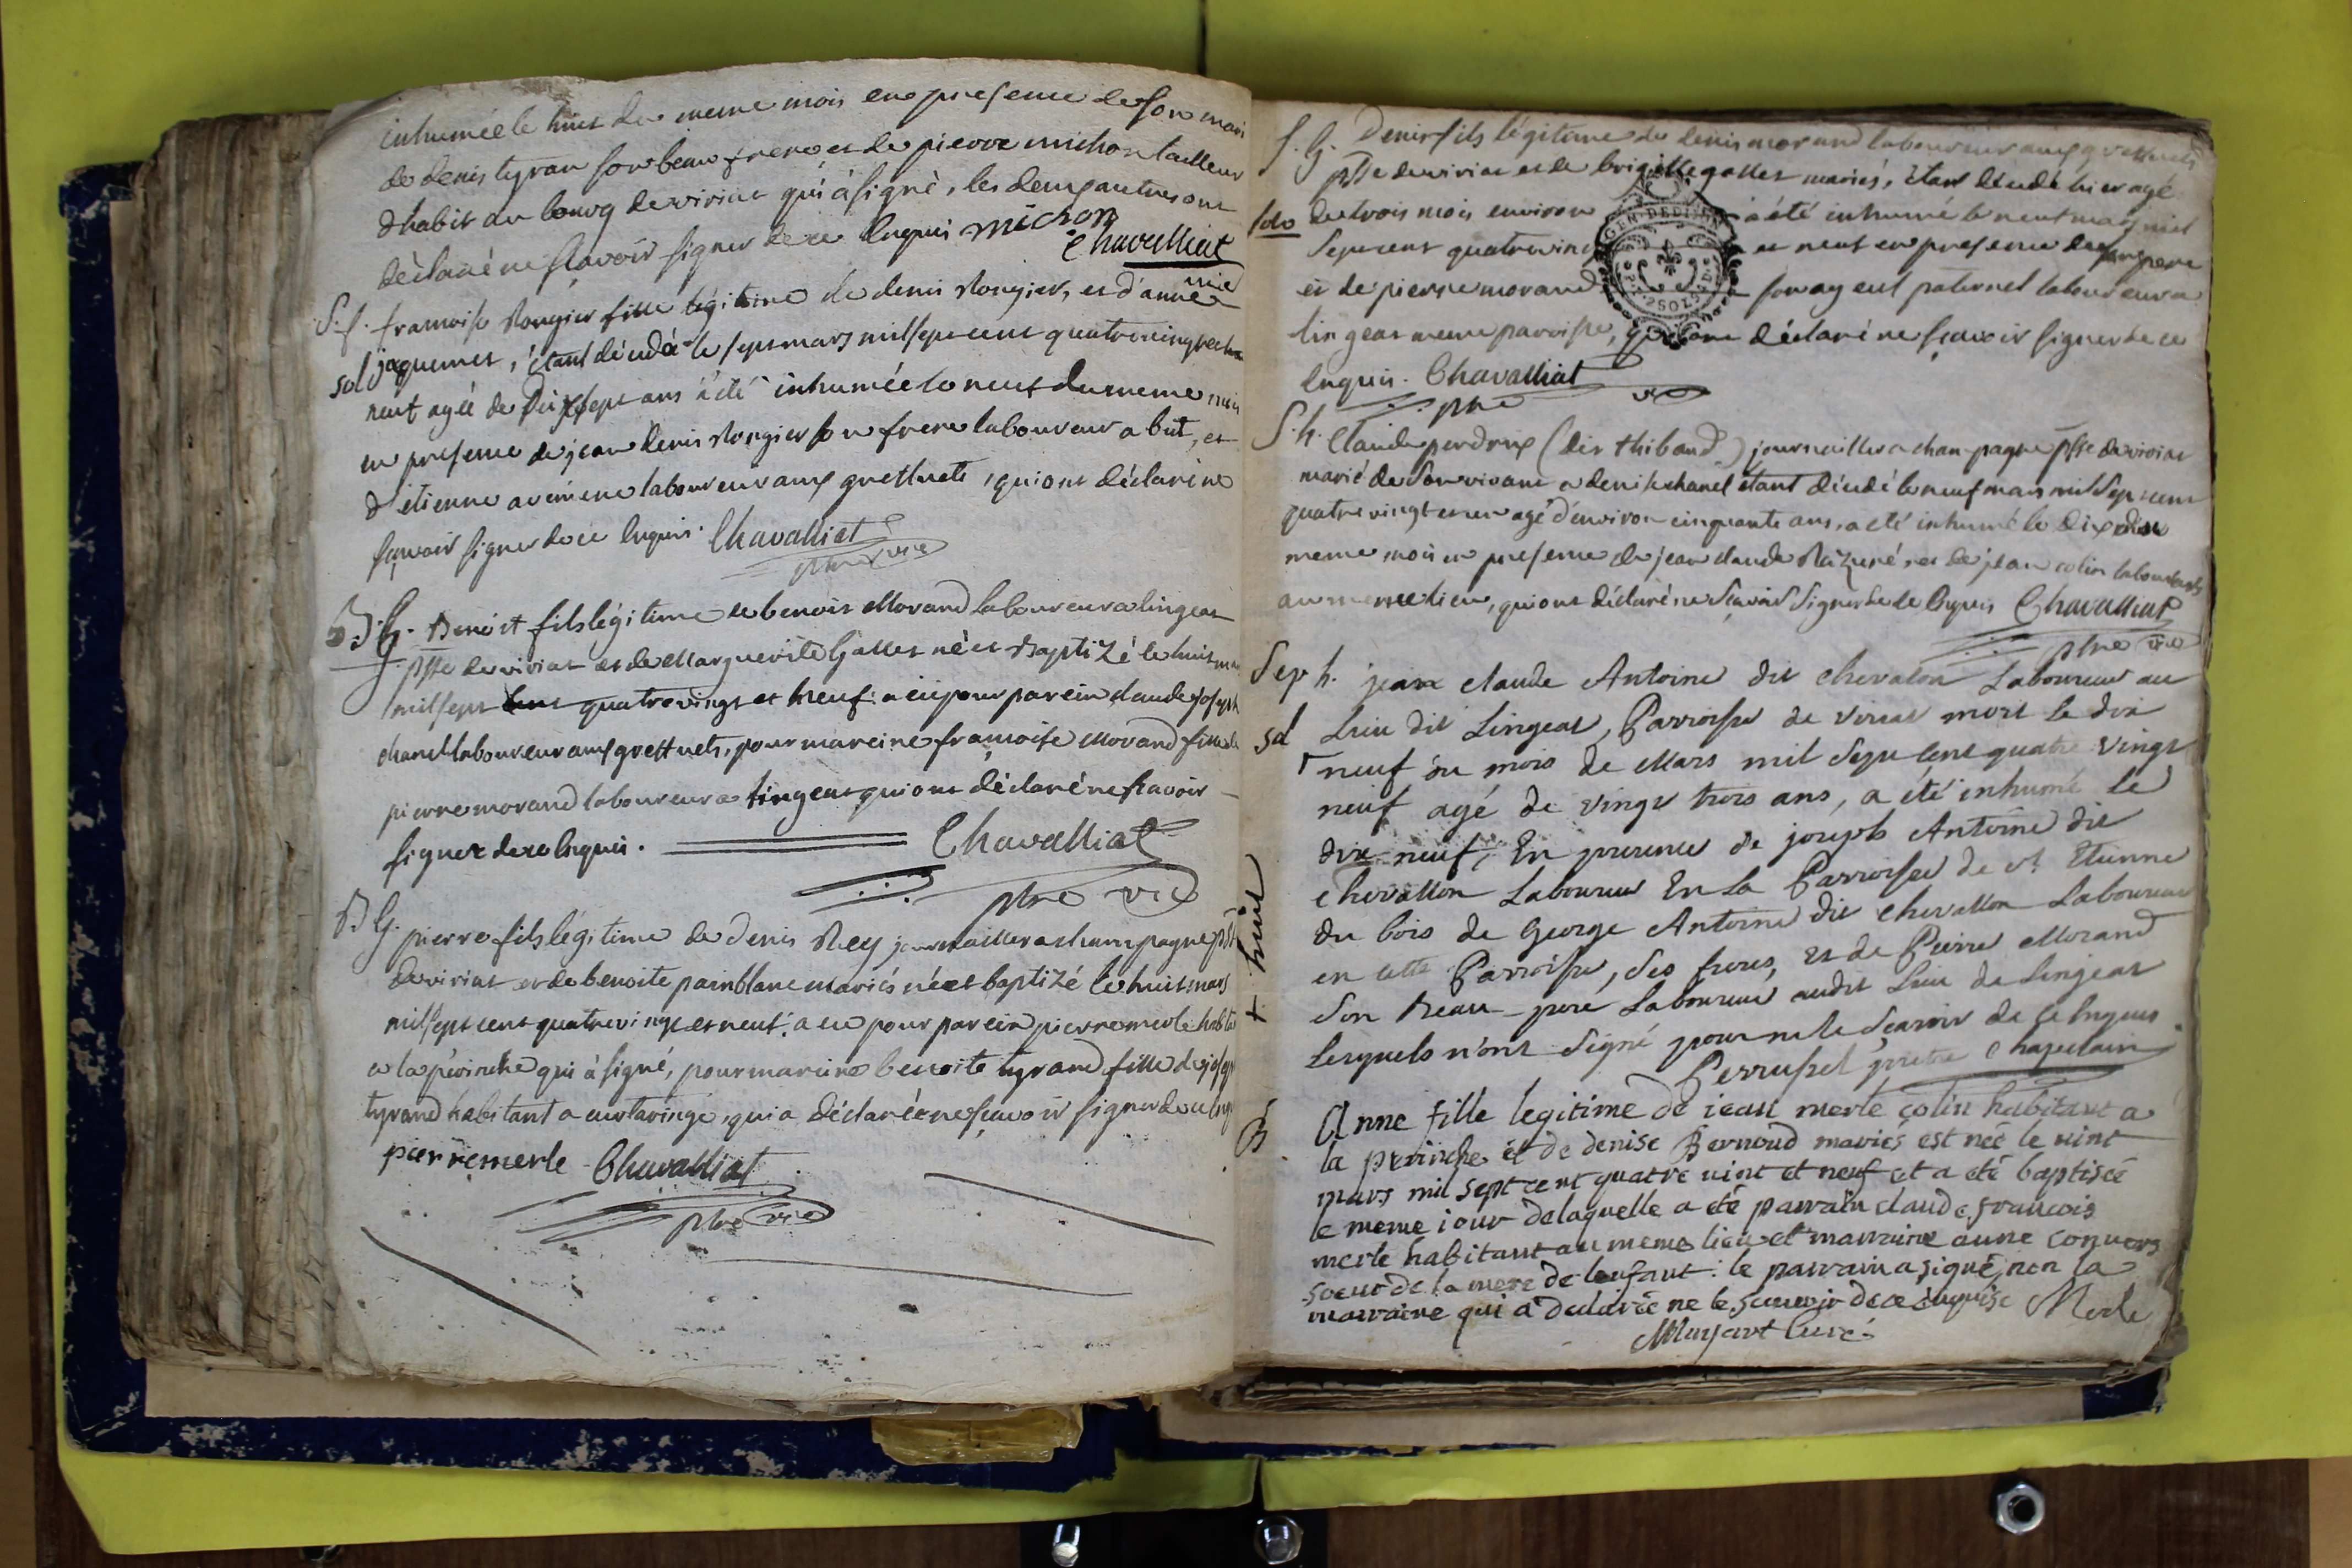 inhumée le huit du meme mois en presence de son mari
de denis tyran son beau frere et de pierre michon tailleur
d'habit au bourg de viriat qui à signé, les deux autres ont
déclaré ne sçavoir signer de ce Enquis michon
Chavalliat
vic
S. f. francoise Rougier fille légitime de denis Rougier, et d'anne
sol jaquemet, étant décédé le sept mars mil sept cent quatre vingt et
neuf agée de dix sept ans a été inhumée le neuf du meme mois
en presence de jean denis Rougier son frere laboureur a but, et
d'étienne laboureur aux greffuets, qui ont déclaré ne
sçavoir signer de ce Enquis. Chavalliat
ptre vic
B. G. Benoit fils légitime de benoit Morand laboureur a lingeat
psse de viriat et de Marguerite Gallet né et Baptizé le huit mars
mil sept cent quatre vingt et neuf. a eu pour parein claude joseph
chanel laboureur aux greffuets, pour mareine francoise Morand fille de
pierre morand laboureur a lingeat qui ont déclaré ne scavoir
signer de ce Enquis. Chavalliat
ptre vic
B G. pierre fils légitime de denis Rey journaillier a champagne psse
de viriat et de benoite painblanc mariés né et baptizé le huit mars
mil sept cent quatre vingt et neuf. a eu pour parein pierre merle habitant
a la pérvinche qui à signé, pour mareine benoite tyrand fille de joseph
tyrand habitant a curtaringe, qui a déclaré ne scavoir signer de ce Enquis
pierre merle Chavalliat
ptre vic
S. G. Denis fils légitime de denis morand laboureur aux greffuets
psse de viriat et de brigitte gallet mariés, étant décédé hier agé
sdo de trois mois environ a été inhumé le neuf mars mil
sept cent quatre vingt et neuf en presence de son pere
et de pierre morand son ayeul paternel laboureur a
lingeat meme paroisse, qui ont déclaré ne sçavoir signer de ce
Enquis. Chavalliat
ptre vic
S. h. Claude perdrix (dit thibaud) journaillier a champagne psse de viriat
marié de son vivant a denise chanel étant décédé le neuf mars mil sept cent
quatre vingt et neuf agé d'environ cinquante ans, a été inhumé le dix du
meme mois en presence de jean claude et de jean colin laboureurs
au meme lieu, qui ont déclaré ne scavoir signer de ce Enquis Chavalliat
ptre vic
Sep h. jean claude Antoine dit chevalon Laboureur au
sd Lieu dit Lingeat, Parroisse de viriat mort le dix
+ huit
neuf du mois de Mars mil Sept Cent quatre vingt
neuf agé de vingt trois ans, a été inhumé le
dix neuf, En presence de joseph Antoine dit
chevallon Laboureur En la Parroisse de st Etienne
du bois de George Antoine dit chevallon Laboureur
en cette Parroisse, ses freres, et de Pierre Morand
son Beau-pere Laboureur audit Lieu de Lingeat
Lesquels n'ont signé pour ne le sçavoir de ce Enquis
Perruset pretre chapelain
B Anne fille legitime de iean merle colin habitant a
la pervinche et de denise Bernoud mariés est née le vint
mars mil sept cent quatre vint et neuf et a été baptisée
le meme iour de laquelle a été parrain claude francois
merle habitant au meme lieu et marraine anne convers
soeur de la mere de l'enfant: le parrain a signé, non la
marraine qui a declarée ne le scavoir de ce enquise Merle
curé.